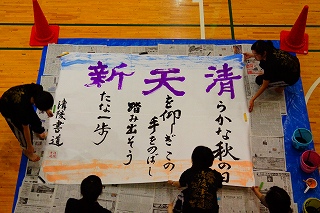 清天新
らかな秋の日
を仰ぎこの
手をのばし
踏み出そう
たな一歩
清陵書道